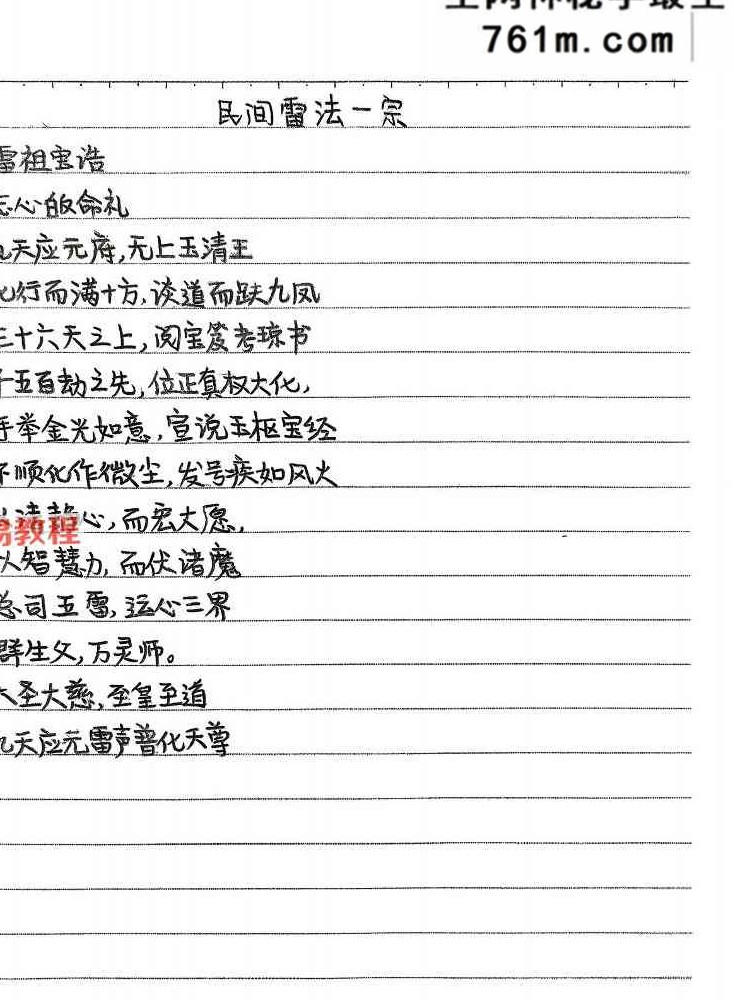 761m.com
民间雷法一宗
雷祖宝浩
志心皈命礼
九天应元府,无上玉清王
化行而满十方,谈道而趺九凤
三十六天之上,阅宝笈考琼书
千五百劫之先,位正真权大化,
手举金光如意,宣说玉枢宝经
不顺化作微尘,发号疾如风火
清静心,而宏大愿,
易教程
以智慧力,而伏诸魔
总司五雷,运心三界
群生父,万灵师。
大圣大慈,至皇至道
九天应元雷声普化天尊